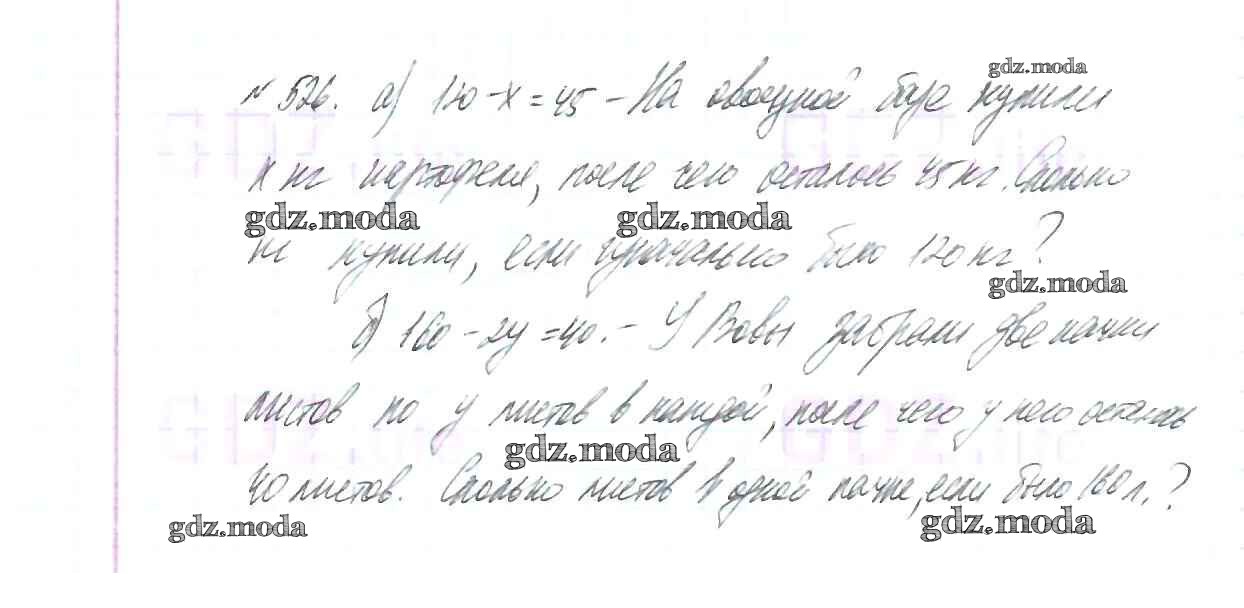 gdz.moda
№ 526. а) 120 - x = 45 - На овощной базе купили
x кг картофеля, после чего осталось 45 кг. Сколько
gdz.moda gdz.moda
кг купили, если изначально было 120 кг?
gdz.moda
б) 160 - 2y = 40. - У Вовы забрали две пачки
листов по y листов в каждой, после чего у него осталось
gdz.moda
40 листов. Сколько листов в одной пачке, если было 160 л.?
gdz.moda gdz.moda